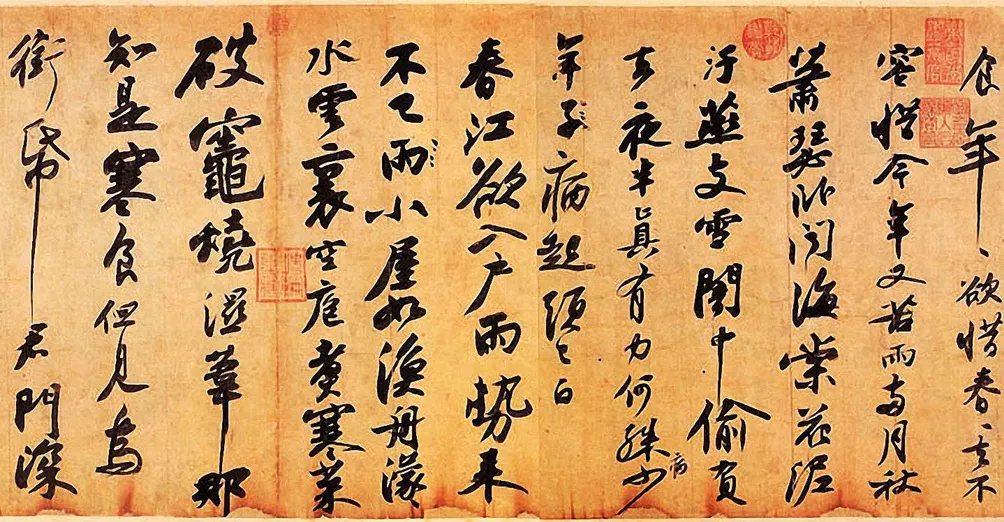 食年、欲惜春、去不
容惜今年又苦雨兩月秋
蕭瑟臥聞海棠花泥
汙燕支雪闇中偷負
去夜半真有力何殊少病
年子病起頭已白
春江欲入戶雨勢來
不已雨小屋如漁舟濛
水雲裏空庖煮寒菜
破竈燒濕葦那
知是寒食但見烏
銜帋君門深